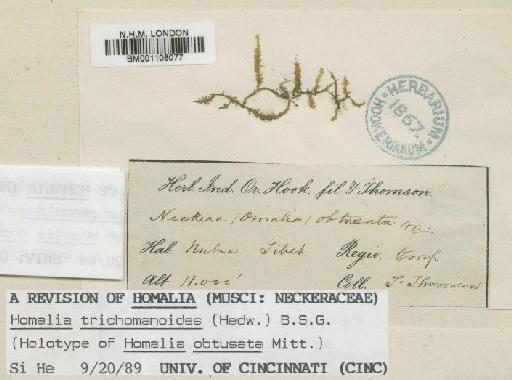 N.H.M. LONDON
BM001108077
HERBARIUM HOOKERIANUM 1867
Herb. Ind. Or. Hook. fil & Thomson.
Neckera (Omalia) obtusata
Hab. Tibet Regio Temp
Alt 11.000 Coll. T. Thomson
A REVISION OF HOMALIA (MUSCI: NECKERACEAE)
Homalia trichomanoides (Hedw.) B.S.G.
(Holotype of Homalia obtusata Mitt.)
Si He 9/20/89 UNIV. OF CINCINNATI (CINC)